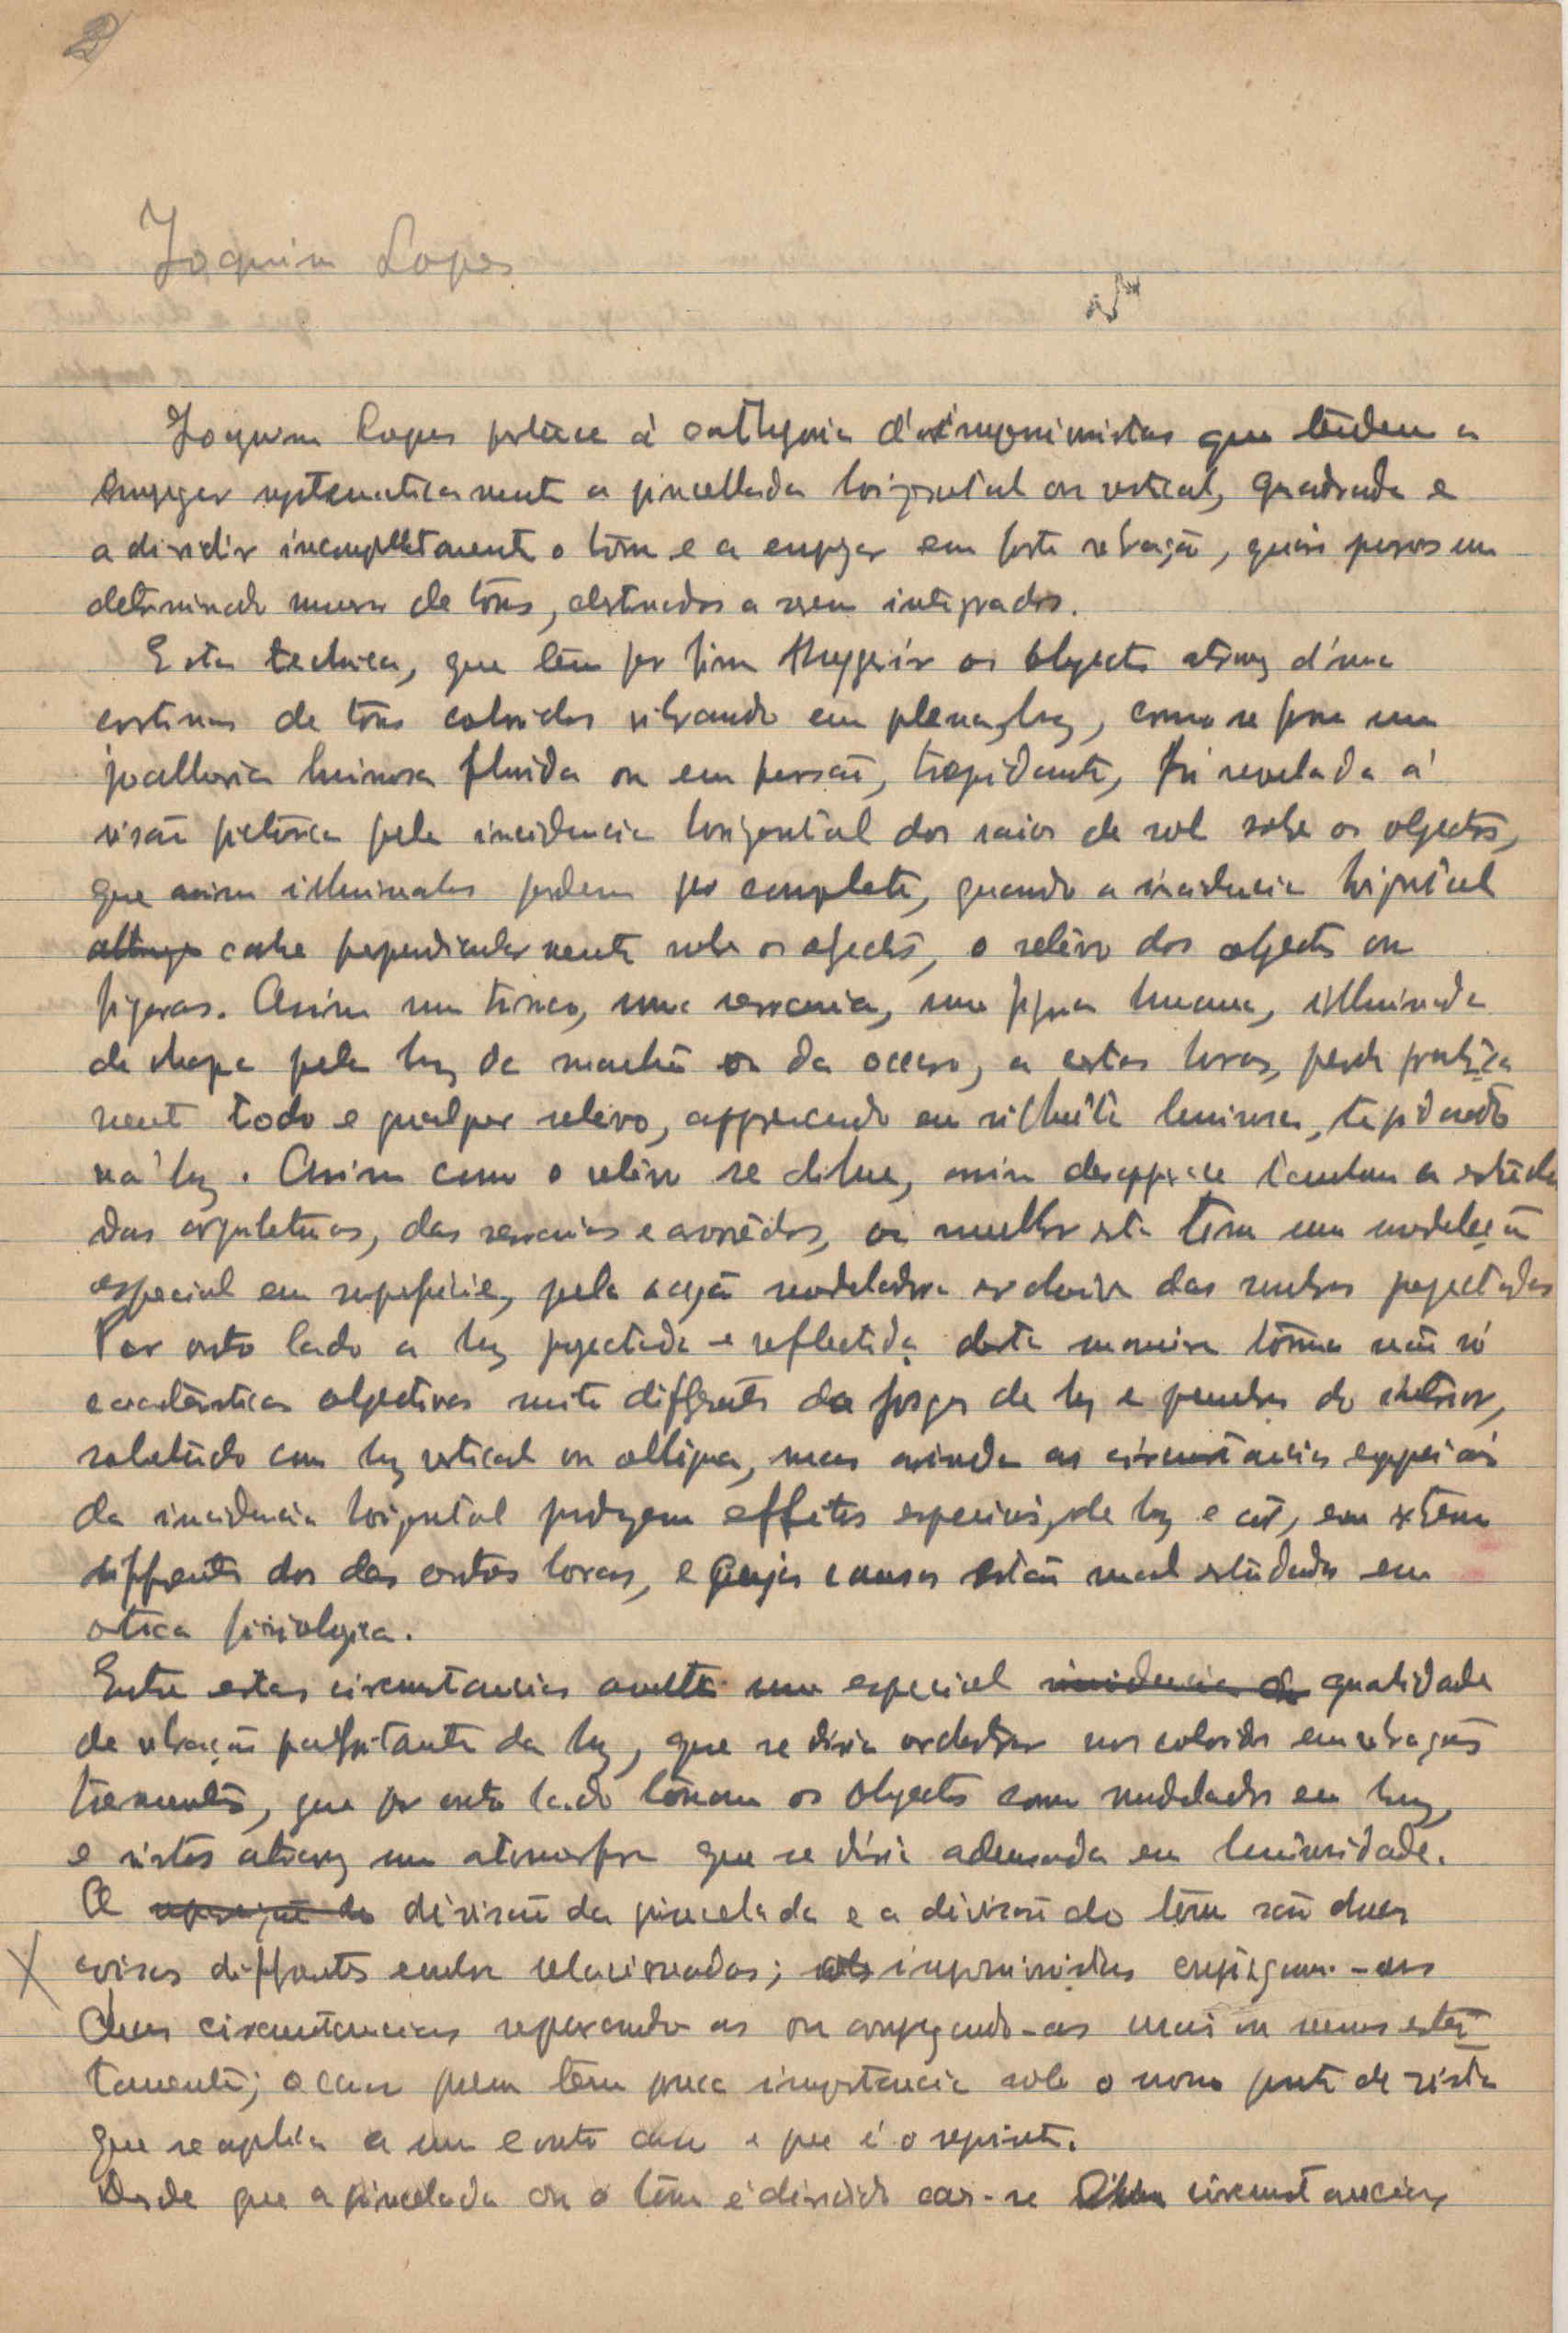 2
Joaquim Lopes
Joaquim Lopes pertence á cathegoria d'impressionistas que tendem a
empregar systematicamente a pincellada horizontal ou vertical, quadrada e
a dividir incompletamente o tom e a empregar em forte vibração, quasi puros um
determinado numero de tons, destinados a serem integrados.
Esta technica, que tem por fim suggerir os objectos atravez d'uma
cortina de tons coloridos vibrando em plena luz, como se fosse uma
joalheria luminosa fluida ou em fusão, trepidante, foi revelada á
visão pictorica pela incidencia horizontal dos raios de sol sobre os objectos,
que assim illuminados perdem por completo, quando a incidencia horizontal
cahe perpendicularmente sobre os objectos, o relêvo dos objectos ou
figuras. Assim um tronco, uma serrania, uma figura humana, illuminada
de chapa pela luz da manhã ou do occaso, a certas horas, perde pratica
mente todo e qualquer relevo, apparecendo em silhuêta luminosa, trepidando
na luz. Assim como o relêvo se dilue, assim desapparece tambem a
das arquiteturas, das serranias e arvorêdos, ou melhor esta tem uma modelação
especial em superficie, pela acção modeladora exclusiva das sombras projectadas
Por outro lado a luz projectada e reflectida desta maneira tôma não só
caracteristicas objectivas muito differentes da de luz e penumbra do interior,
sobretudo com luz vertical ou obliqua, mas ainda as circunstancias especiais
da incidencia horizontal produzem effeitos especiais, de luz e côr, em extremo
differentes dos das outras horas, e cujas causas estão mal estudadas em
otica fisiologica.
Entre estas circumstancias avulta uma especial qualidade
de vibração palpitante da luz, que se diria orchestrar nos coloridos em vibrações
trementes, que por outro lado tornam os objectos como modelados em luz,
e vistos atravez uma atmosfera que se diria adensada em luminosidade.
A divisão da pincelada e a divisão do tom são duas
coisas differentes embora relacionadas; os impressionistas empregam-as
duas circunstancias separando-as ou conjugando-as mais ou menos estrei
tamente; o caso porem tem pouca importancia sob o nosso ponto de vista
que se aplica a um e outro caso e que é o seguinte.
Desde que a pincelada ou o tom é dividido cai-se circumstancias